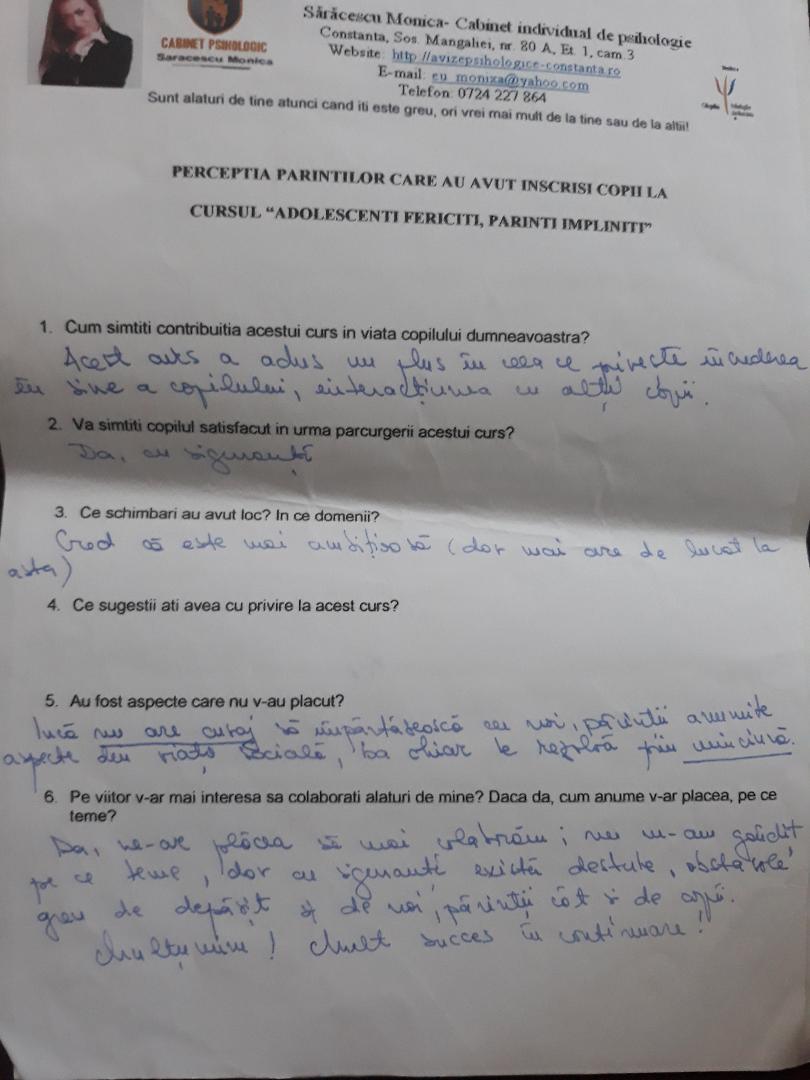 Sărăcescu Monica- Cabinet individual de psihologie
CABINET PSIHOLOGIC
Saracescu Monica
Constanta, Sos. Mangaliei, nr. 80 A, Et. 1, cam.3
Website: http://avizepsihologice-constanta.ro
E-mail: eu_moniza@yahoo.com
Telefon: 0724 227 864
Sunt alaturi de tine atunci cand iti este greu, ori vrei mai mult de la tine sau de la altii!
PERCEPTIA PARINTILOR CARE AU AVUT INSCRISI COPII LA
CURSUL “ADOLESCENTI FERICITI, PARINTI IMPLINITI”
1. Cum simtiti contribuitia acestui curs in viata copilului dumneavoastra?
Acest curs a adus un plus în ceea ce privește încrederea
în sine a copilului, interacțiunea cu alți copii.
2. Va simtiti copilul satisfacut in urma parcurgerii acestui curs?
Da, cu siguranță
3. Ce schimbari au avut loc? In ce domenii?
Cred că este mai ambițioasă (dar mai are de lucrat la
asta)
4. Ce sugestii ati avea cu privire la acest curs?
5. Au fost aspecte care nu v-au placut?
Încă nu are curaj să împărtășească cu noi, părinții anumite
aspecte din viața socială, ba chiar le rezolvă prin minciună.
6. Pe viitor v-ar mai interesa sa colaborati alaturi de mine? Daca da, cum anume v-ar placea, pe ce
teme?
Da, ne-ar plăcea să mai colaborăm; nu m-am gândit
pe ce teme, dar cu siguranță există destule, obstacole
greu de depășit și de noi, părinții cât și de copii.
Mulțumim! Mult succes în continuare!